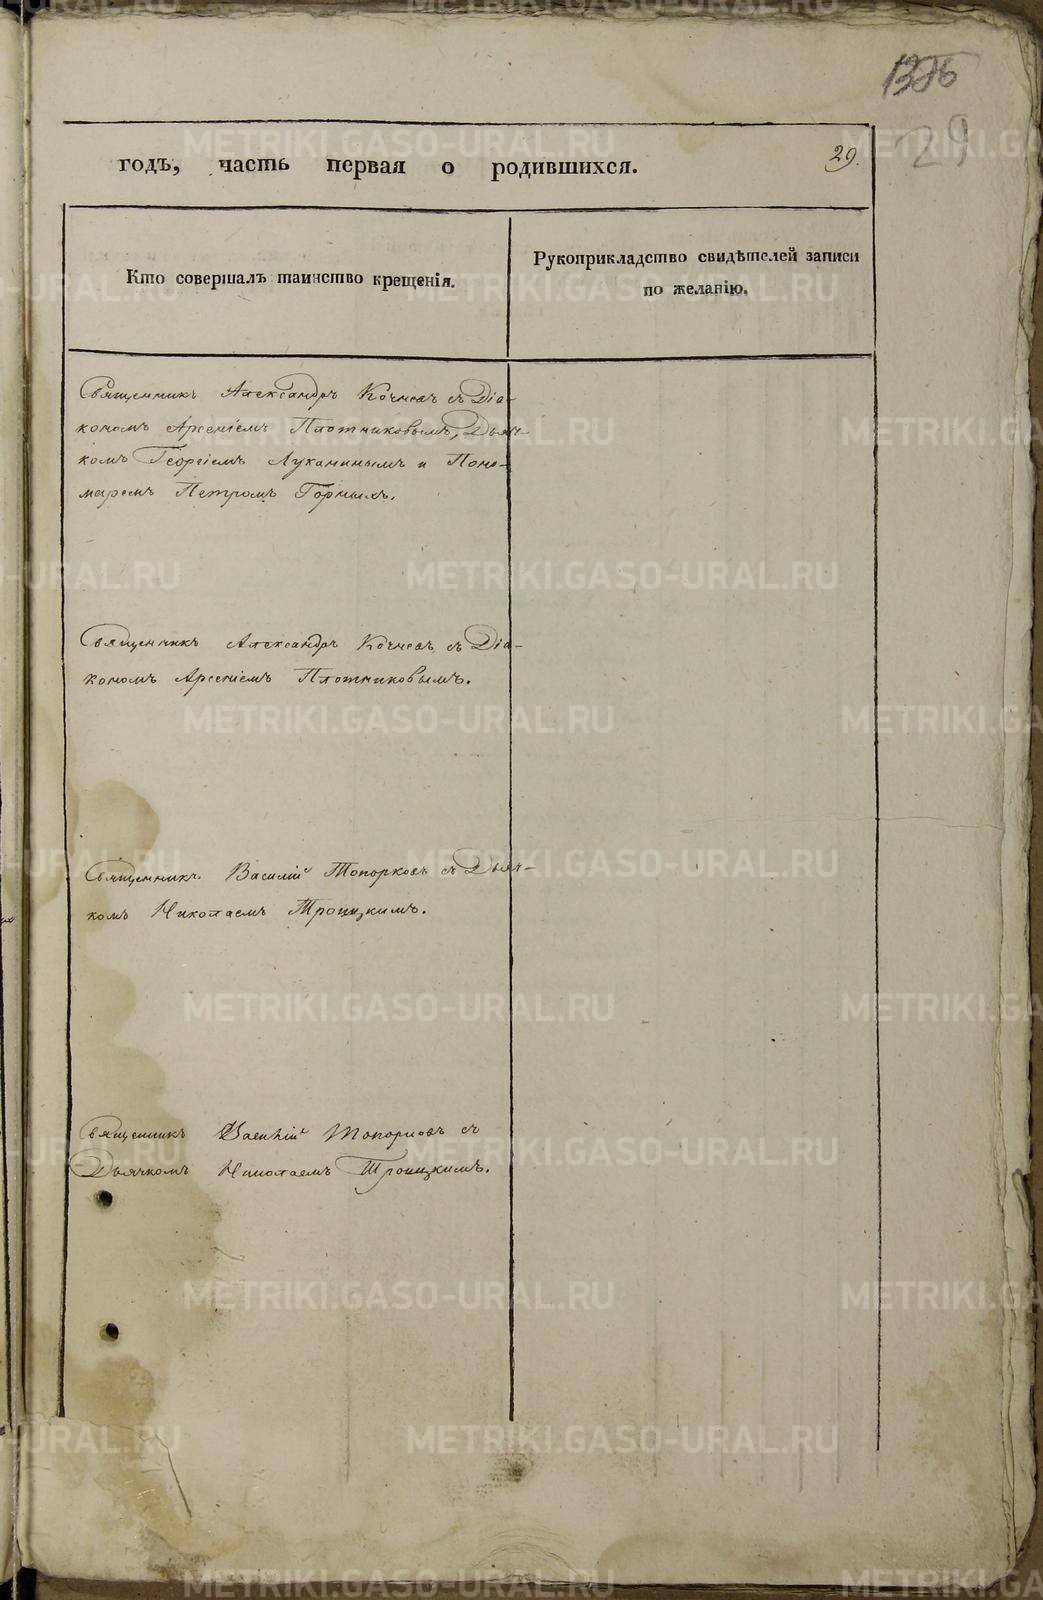 годъ, часть первая о родившихся.
29.
29
Кто совершалъ таинство крещенія.
Рукоприкладство свидѣтелей записи
по желанію.
Священникъ Александръ Кочневъ съ Діа-
кономъ Арсеніемъ Плотниковымъ, Дьяч-
комъ Георгіемъ Луканинымъ и Поно-
маремъ Петромъ Горныхъ.
Священникъ Александръ Кочневъ съ Діа-
кономъ Арсеніемъ Плотниковымъ.
Священникъ Василій Топорковъ съ Дьяч-
комъ Николаемъ Троицкимъ.
Священникъ Василій Топорковъ съ
Дьячкомъ Николаемъ Троицкимъ.
METRIKI.GASO-URAL.RU